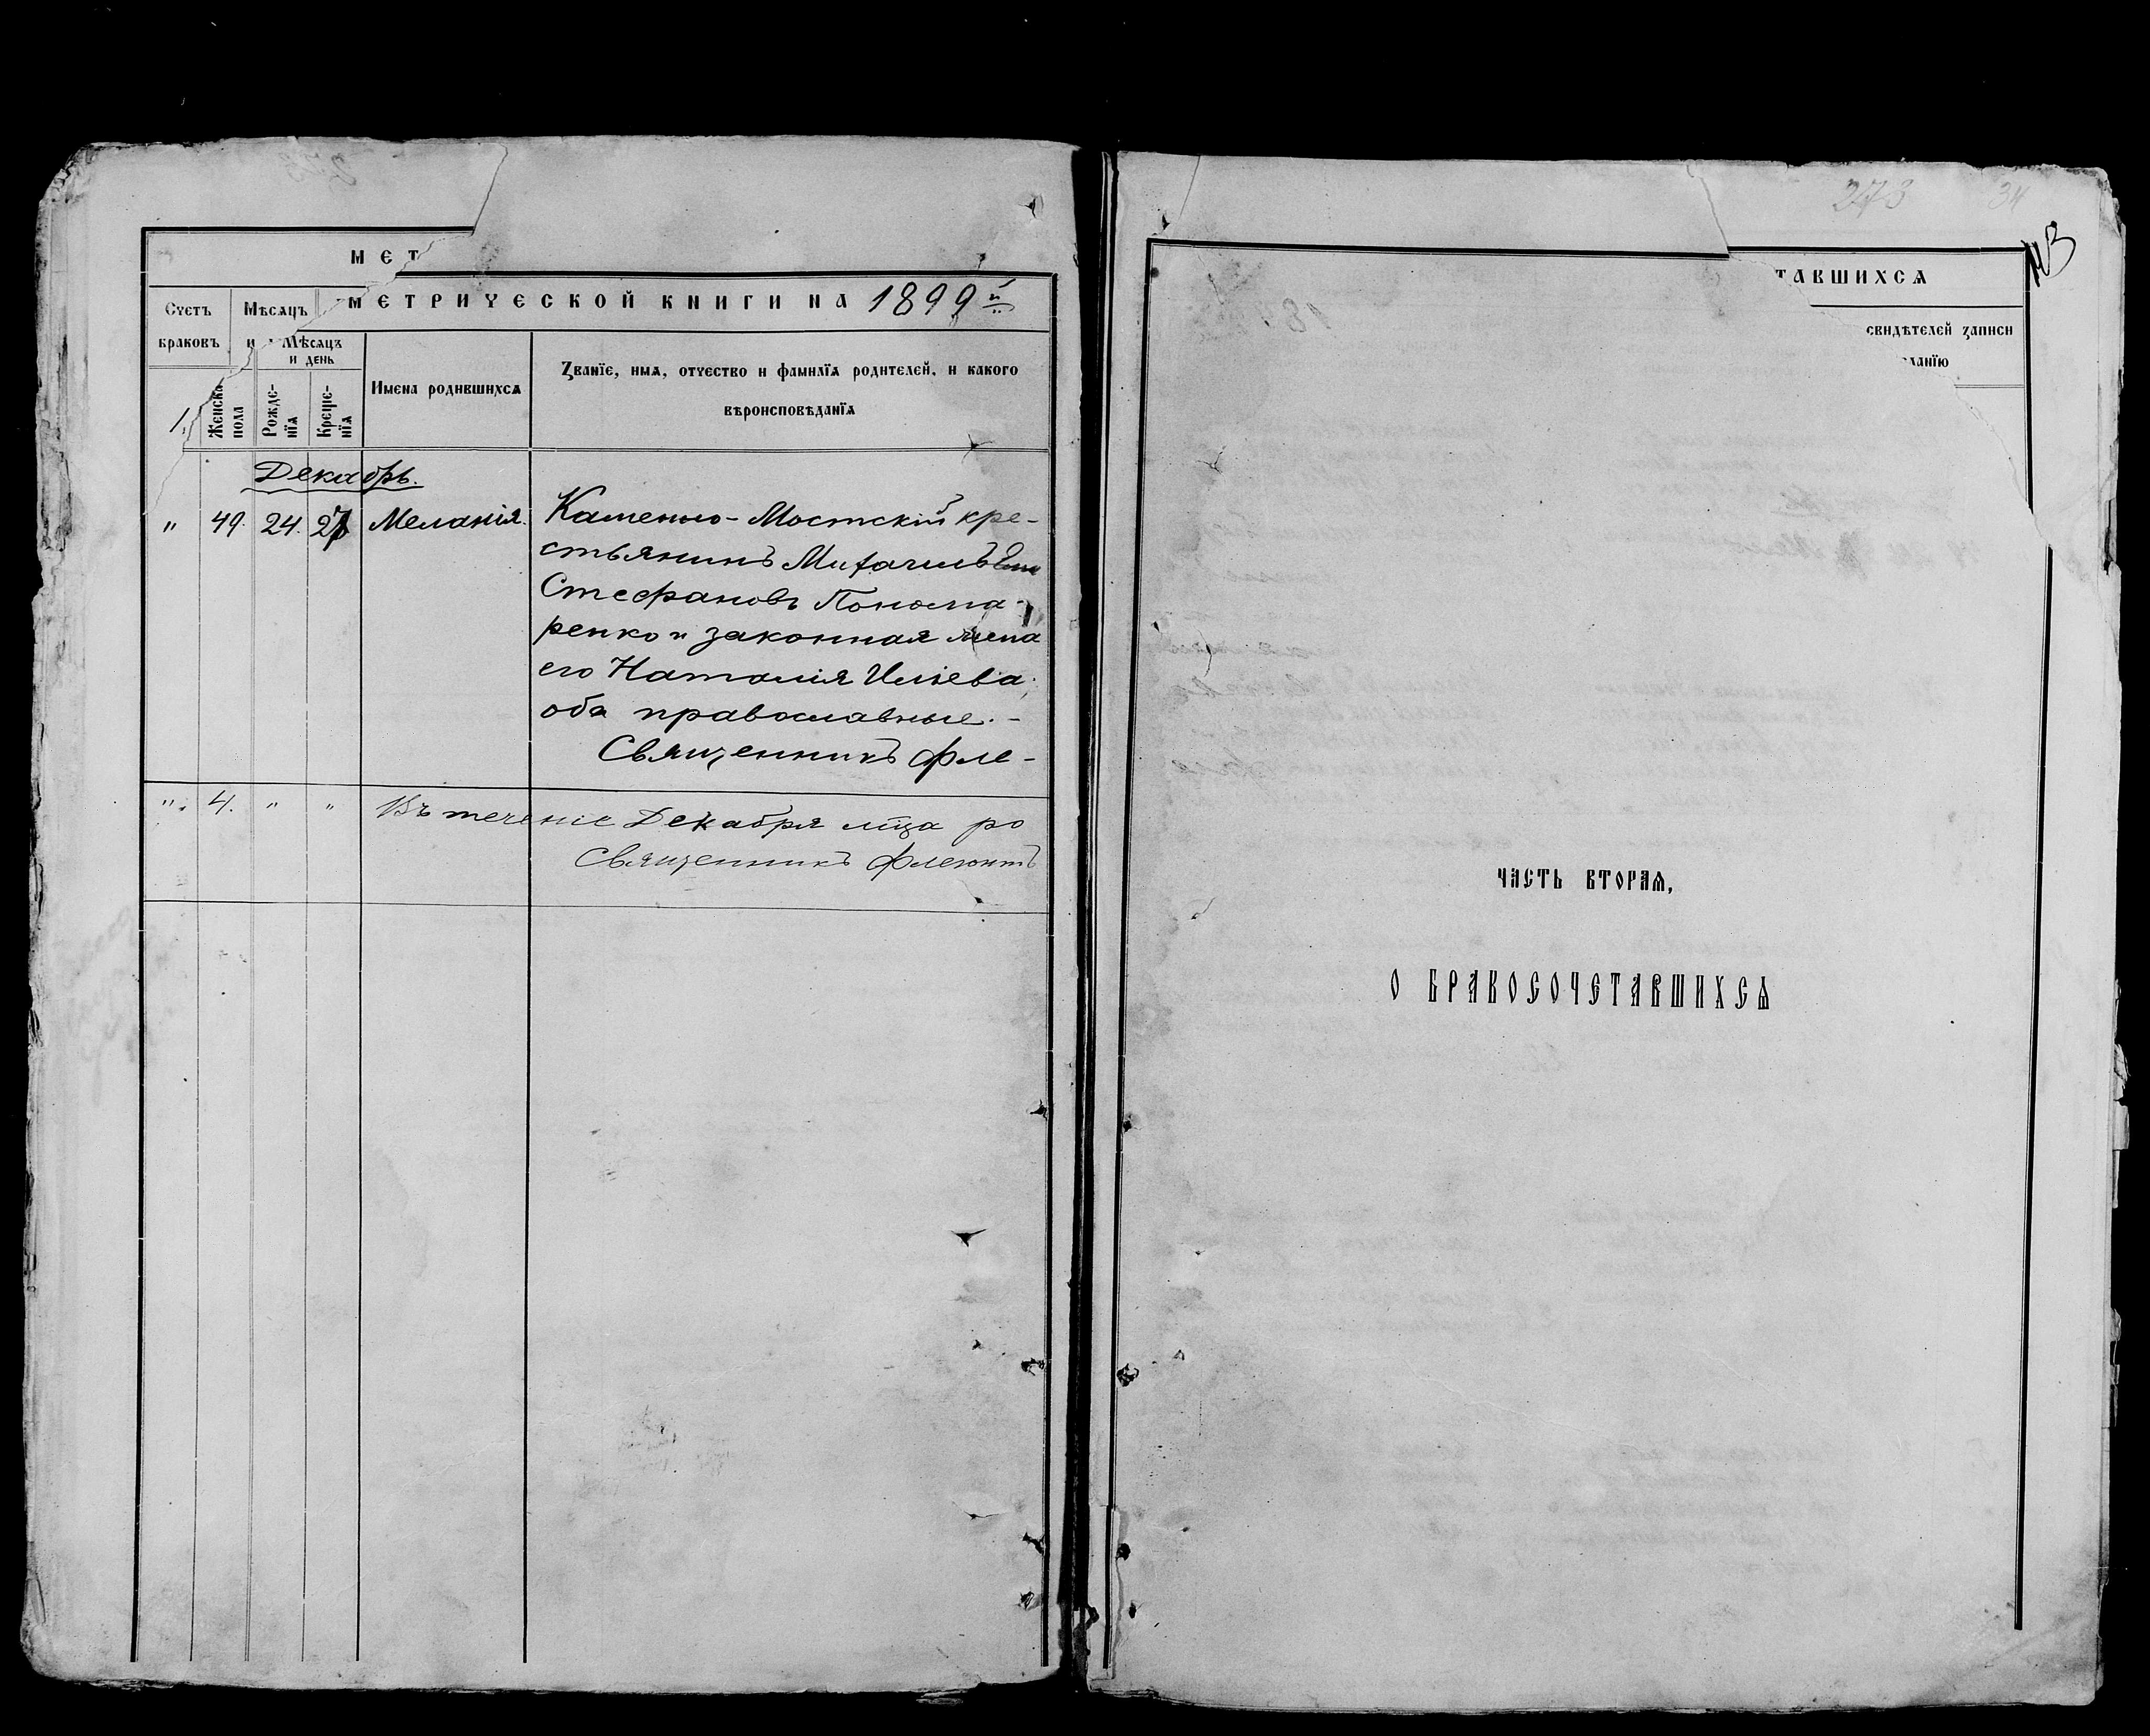 МЕТ
МЕТРИЧЕСКОЙ КНИГИ НА 1899й
Счетъ
браковъ
Мѣсяцъ
и
Мѣсяцъ
и день
Женска
пола
Рожде-
нїя
Креще-
нїя
Имена родившихся
Званїе, имя, отчество и фамилїя родителей, и какого
вѣроисповѣданїя
1.
Декабрь.
" 49. 24. 27 Меланія. Каменно-Мостскій кре-
стьянинъ Михаилъ
Стефановъ Понома-
ренко и законная жена
его Наталія Иліева
оба православные. -
Священникъ Фле-
" 4. " " Въ теченіе Декабря мца ро
Священникъ Флегонтъ
273 34
ТАВШИХСЯ
свидѣтелей записи
ланїю
ЧАСТЬ ВТОРАЯ,
О БРАКОСОЧЕТАВШИХСЯ